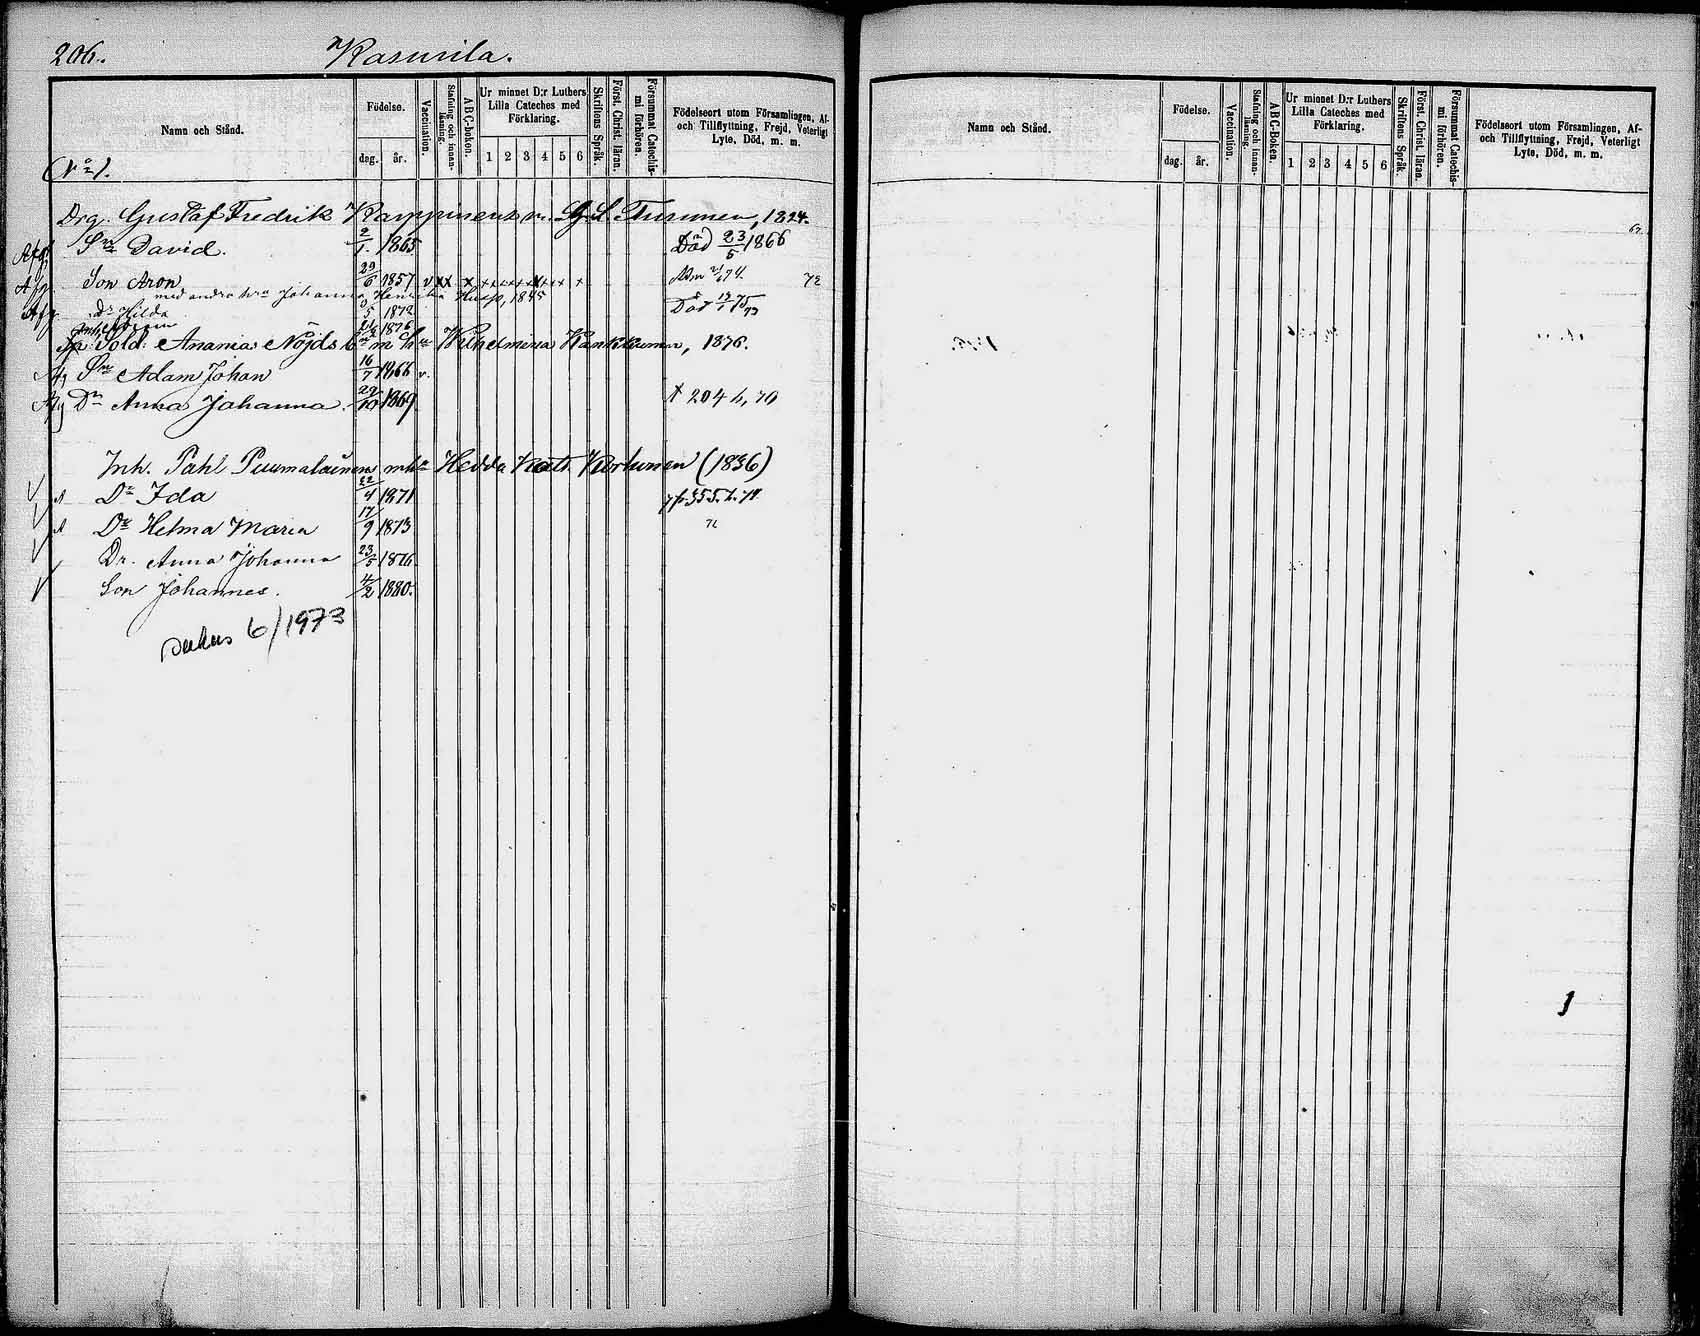 206.
Kasurila.
Namn och Stånd.
Födelse.
dag. år.
Vaccination.
Stafning och innanläsning.
ABC-boken.
Ur minnet D:r Luthers Lilla Cateches med Förklaring.
1 2 3 4 5 6
Skriftens Språk.
Först. Christ. läran.
Försummat Catechismi förhören.
Födelseort utom Församlingen, Af- och Tillflyttning, Frejd, Veterligt Lyte, Död, m. m.
N:o 1.
Drg. Gustaf Fredrik Karppinens Tusunen, 1824.
Afg. Sn David. 2/1. 1865 Död 23/5 1866
Afg Son Aron 29/6 1857 v x x x x x x x x x x x 72
med andra hru Johanna Henrika Husso, 1845
Afg Dr Hilda 5 1872 Död
1876
Sold. Ananias Nöjds m hu Wilhelmina Kankkunen, 1876.
Afg Sn Adam Johan 16/7 1866 v.
Afg Dr Anna Johanna. 29/10 1869 204 h, 70
Inh. Påhl Puumalainens m hu Hedda Kat. Korhonen (1836)
Dr Ida 22/4 1871
Dr Helma Maria 17/9 1873
Dr. Anna Johanna 23/5 1876
Son Johannes. 4/2 1880.
6/1973
Namn och Stånd.
Födelse.
dag. år.
Vaccination.
Stafning och innanläsning.
ABC-Boken.
Ur minnet D:r Luthers Lilla Cateches med Förklaring.
1 2 3 4 5 6
Skriftens Språk.
Först. Christ. läran.
Försummat Catechismi förhören.
Födelseort utom Församlingen, Af- och Tillflyttning, Frejd, Veterligt Lyte, Död, m. m.